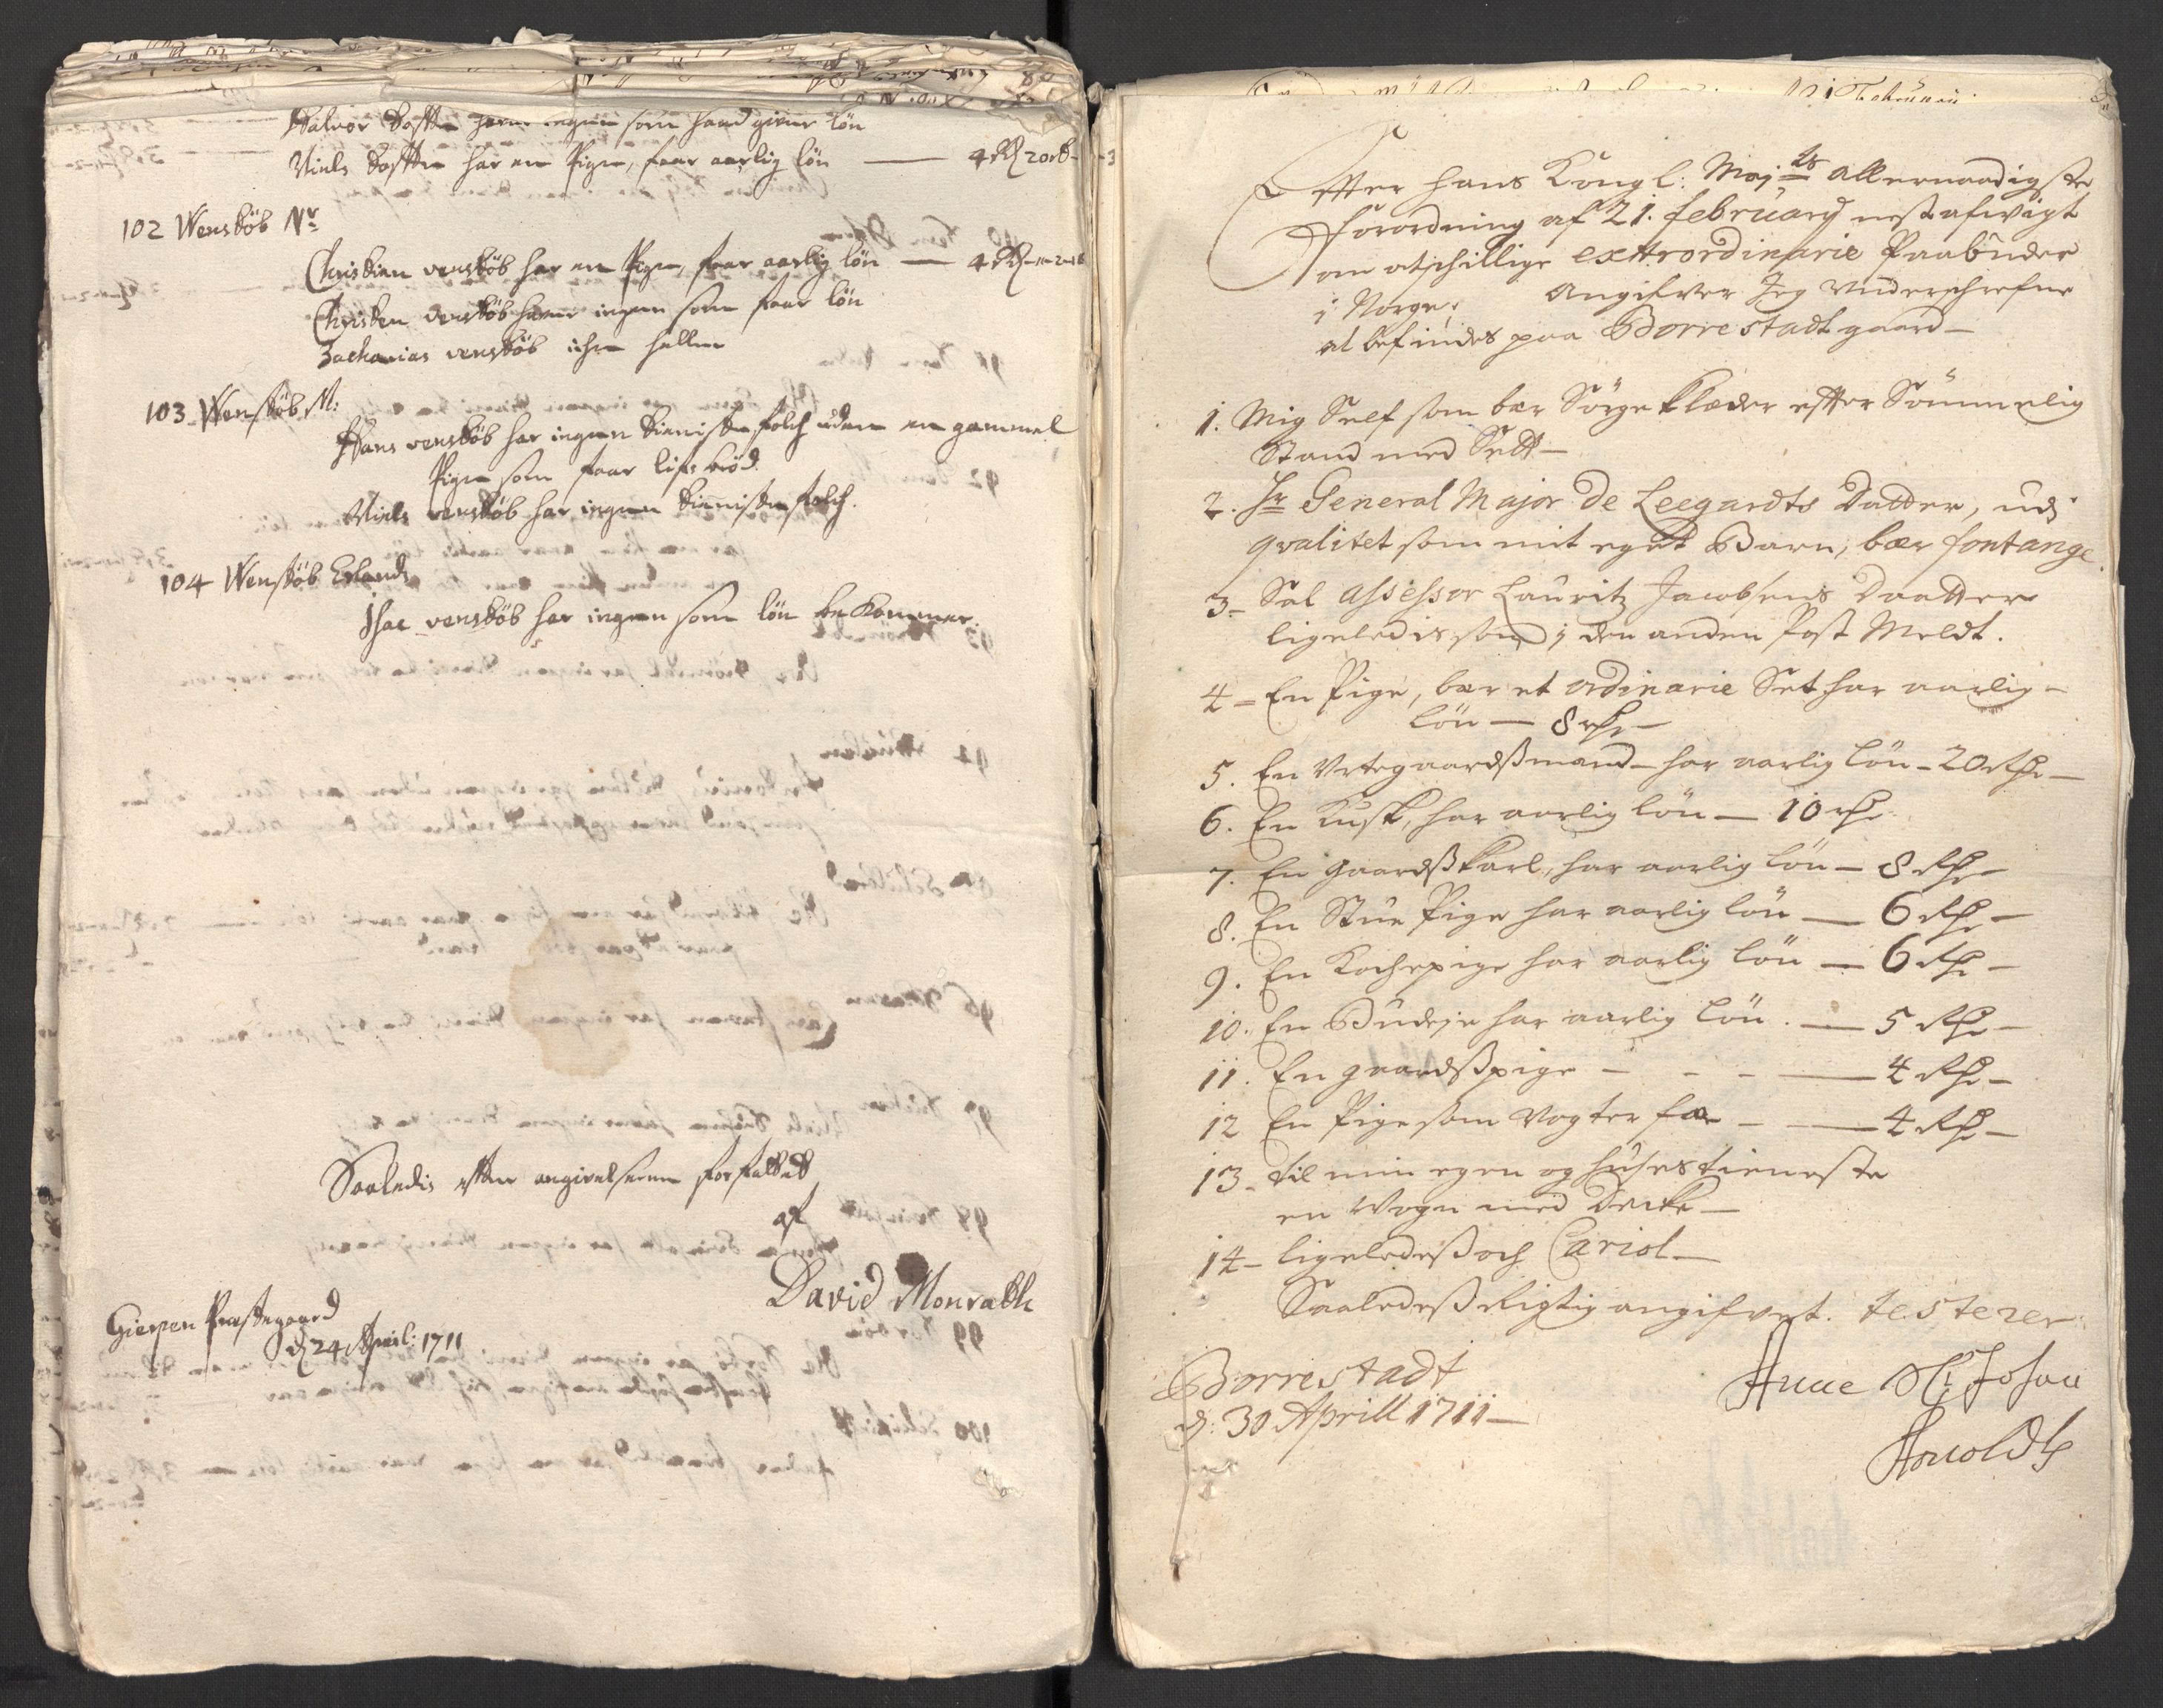 Halvor Dosten haver ingen som hand giver løn
Niels Dosten har en Pige, faar aarlig løn — 4 Rd 20 s
102 Wenstøb Nr
Christian venstøb har en Pige, faar aarlig løn — 4 Rd
Christen venstøb haver ingen som faar løn
Zacharias venstøb iche heller
103 Wenstøb M:
Hans venstøb har ingen tieniste folch uden en gammel
Pige som faar lifs brød.
Niels venstøb har ingen tieniste folch.
104 Wenstøb Erlands
Isac venstøb har ingen som løn be kommer.
Saaledis efter angivelserne forfattet
af
David Monrath
Gierpen Præstegaard
d 24 April: 1711
Effter hans Kongl: Maj:ts allernaadigste
Forordning af 21. february nest afvigt
om atschillige exttrordinarie Paabuder
i Norge, Angifver Jeg underschrefne
at befindes paa Borrestadt gaard —
1. Mig Self som bær Sørge klæder efter Sømmelig
Stand med Sett —
2. Hr General Major de Leegardts Datter, udj
qvalitet som mit eget Barn, bær fontange.
3 — Sal assessor Lauritz Jacobsens Daatter
ligeledis som i den anden Post Meldt.
4 — En Pige, bær et ordinarie Set har aarlig —
løn — 8 rdr —
5. En Urtegaardsmand — har aarlig løn — 20 Rdr —
6. En Kusk, har aarlig løn — 10 rdr
7. En gaardsskarl, har aarlig løn — 8 Rdr —
8. En Stue Pige har aarlig løn — 6 Rdr —
9. En Kochepige har aarlig løn — 6 Rdr —
10. En Budeje har aarlig løn. — 5 Rdr —
11. En gaardsspige - - - — 4 Rdr —
12 En Pige som vogter fæ — — 4 Rdr —
13 — til min egen og huses tieneste
en Vogn med Decke —
14 — ligeledess och Cariol —
Saaledess Rigtig angifvet. testerer
Borrestadt
d: 30 Aprill 1711 —
Anne Sl: Johan
Arnoldts